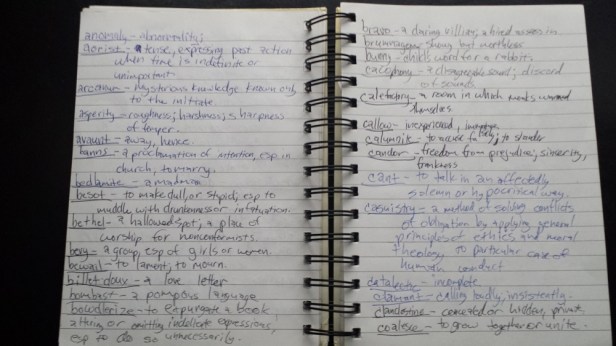 anomaly - abnormality;
aorist - a tense, expressing past action
when time is indefinite or
unimportant.
arcanum - mysterious knowledge known only
to the initiate.
asperity - roughness; hardness; sharpness
of temper.
avaunt - away, hence.
banns - a proclamation of intention, esp in
church, to marry.
bedlamite - a madman
besot - to make dull or stupid; esp to
muddle with drunkenness or infatuation.
bethel - a hallowed spot; a place of
worship for nonconformists.
bevy - a group, esp of girls or women.
bewail - to lament; to mourn.
billet doux - a love letter
bombast - a pompous language
bowdlerize - to expurgate a book
by or omitting indelicate expressions,
esp to do so unnecessarily.
bravo - a daring villian; a hired assassin.
brummagem - showy but worthless
bunny - child's word for a rabbit
cacophony - a disagreeable sound; discord
of sounds
calefactory - a room in which monks warmed
themselves
callow - inexperienced, immature
calumniate - to accuse falsely; to slander
candor - freedom from prejudice; sincerity,
frankness
cant - to talk in an affectedly
solemn or hypocritical way.
casuistry - a method of solving conflicts
of obligation by applying general
principles of ethics and moral
theology to particular case of
human conduct
- incomplete
clamant - calling loudly, insistently.
clandestine - concealed or hidden, private
coalesce - to grow together or unite.